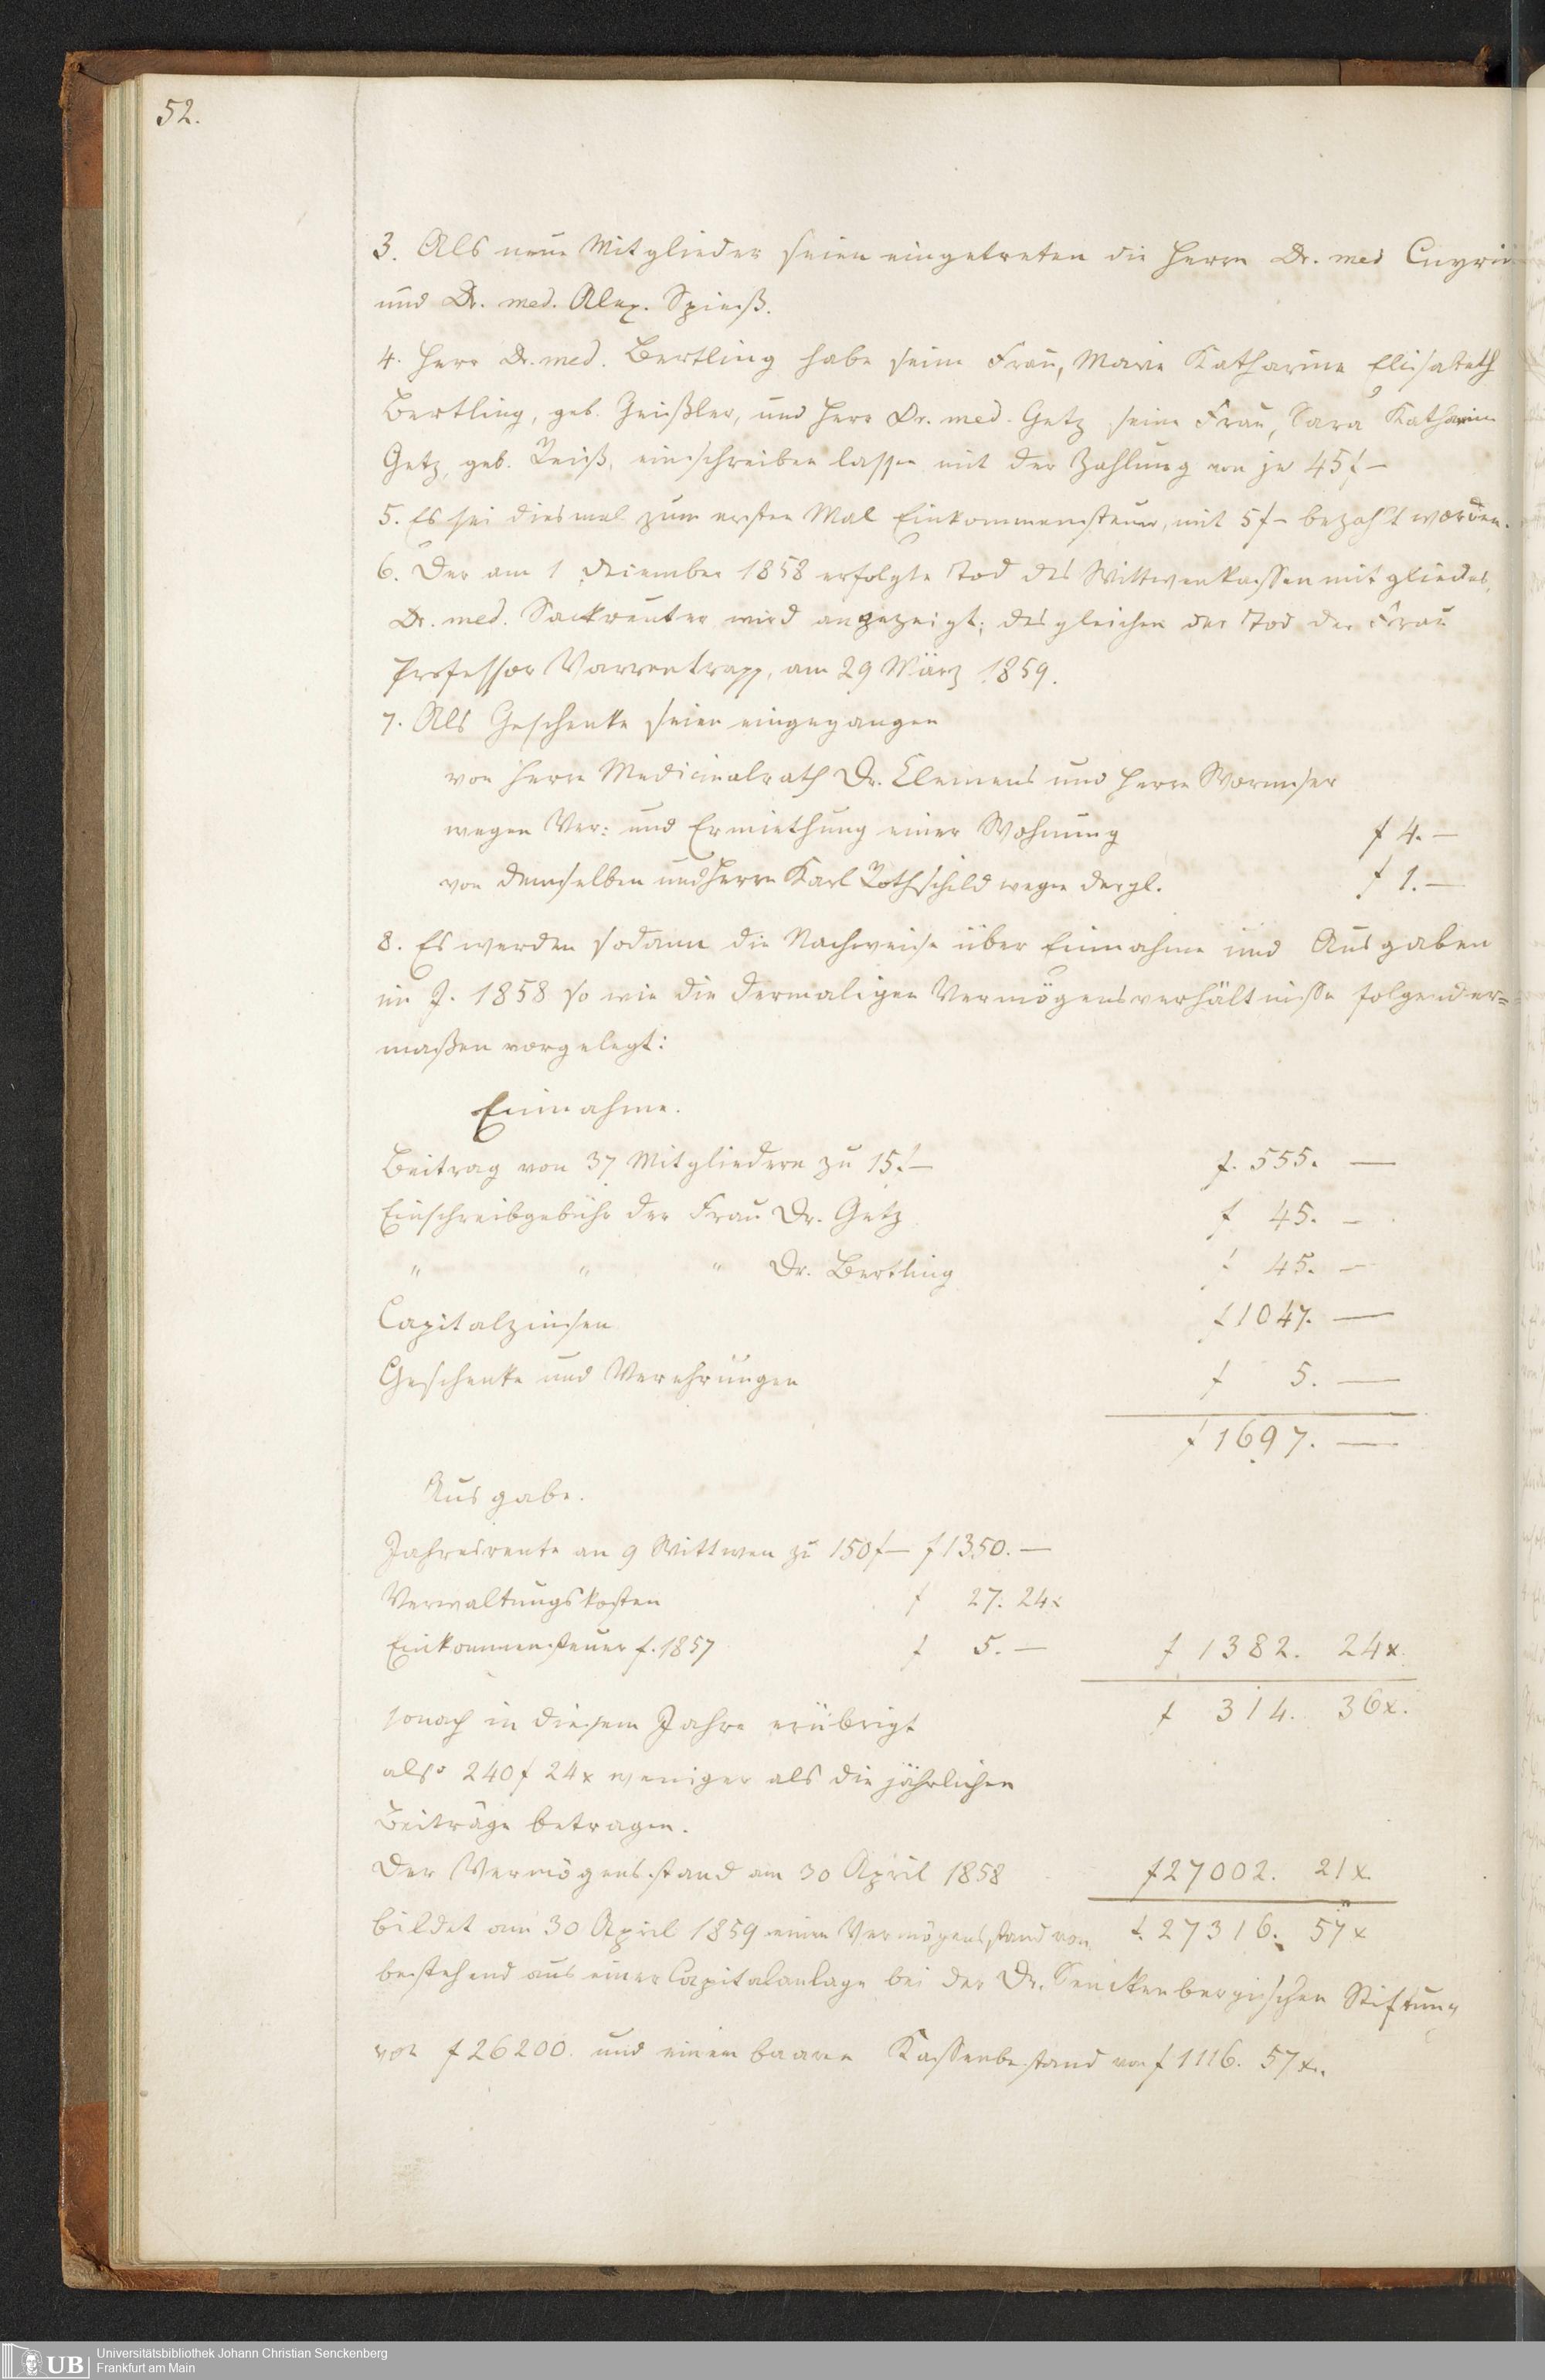 52.
3. Als neue Mitglieder seien eingetreten die Herrn Dr. med Cnyrim
und Dr. med. Alex. Spieß.
4. Herr Dr. med. Bertling habe seine Frau, Marie Katharine Elisabeth
Bertling, geb. Zeißler, und Herr Dr. med. Getz seine Frau, Sara Katharine
Getz, geb. Reiß, einschreiben lassen mit der Zahlung von je 45 f –
5. Es sei diesmal zum ersten Mal Einkommensteuer, mit 5 f – bezahlt worden.
6. Der am 1 December 1858 erfolgte Tod des Wittwenkassenmitgliedes,
Dr. med. Sackreuter wird angezeigt; desgleichen der Tod der Frau
Professor Varrentrapp, am 29 März 1859.
7. Als Geschenke seien eingegangen
von Herrn Medicinalrath Dr. Clemens und Herrn Wormser
wegen Ver: und Ermiethung einer Wohnung f 4. –
von demselben und Herrn Karl Rothschild wegen dergl. f 1. –
8. Es werden sodann die Nachweise über Einnahme und Ausgaben
im J. 1858 so wie die dermaligen Vermögensverhältnisse folgender=
maßen vorgelegt:
Einnahme.
Beitrag von 37 Mitgliedern zu 15 f – f. 555. –
Einschreibgebühr der Frau Dr. Getz f 45. –
" " " Dr. Bertling f 45. –
Capitalzinsen f 1047. –
Geschenke und Verehrungen f 5. –
f 1697. –
Ausgabe.
Jahresrente an 9 Wittwen zu 150 f – f 1350. –
Verwaltungskosten f 27. 24 x
Einkommensteuer f. 1857 f 5. – f 1382. 24 x.
sonach in diesem Jahre erübrigt f 314. 36 x.
also 240 f 24 x weniger als die jährlichen
Beiträge betragen.
Der Vermögensstand am 30 April 1858 f 27002. 21 x.
bildet am 30 April 1859 einen Vermögensstand von f. 27316. 57 x
bestehend aus einer Capitalanlage bei der Dr. Senckenbergischen Stiftung
von f 26200. und einem baaren Kassenbestand von f 1116. 57 x.
UB
Universitätsbibliothek Johann Christian Senckenberg
Frankfurt am Main